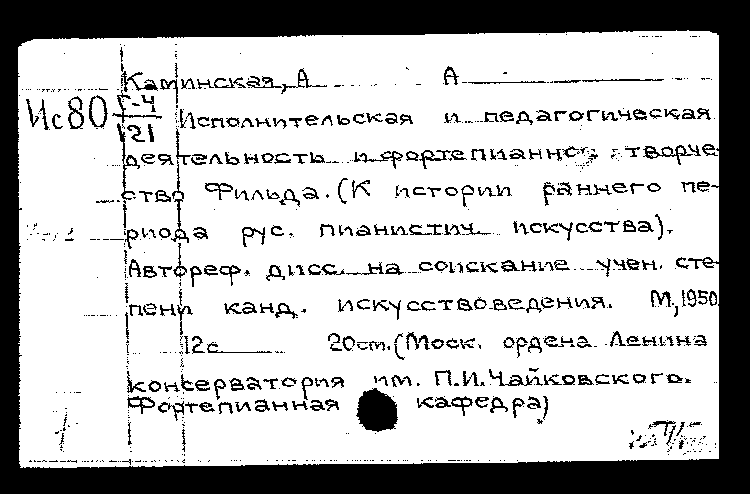 Каминская, А А
Ис80 Г-4/121 Исполнительская и педагогическая
деятельность и фортепианное творче-
ство Фильда. (К истории раннего пе-
риода рус. пианистич. искусства).
Автореф. дисс. на соискание учен. сте-
пени канд. искусствоведения. М, 1950
12с 20см. (Моск. ордена Ленина
консерватория им. П.И.Чайковского.
Фортепианная кафедра)